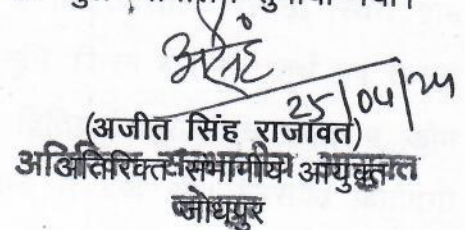 25/04/24
(अजीत सिंह राजावत)
अतिरिक्त संभागीय आयुक्त
जोधपुर